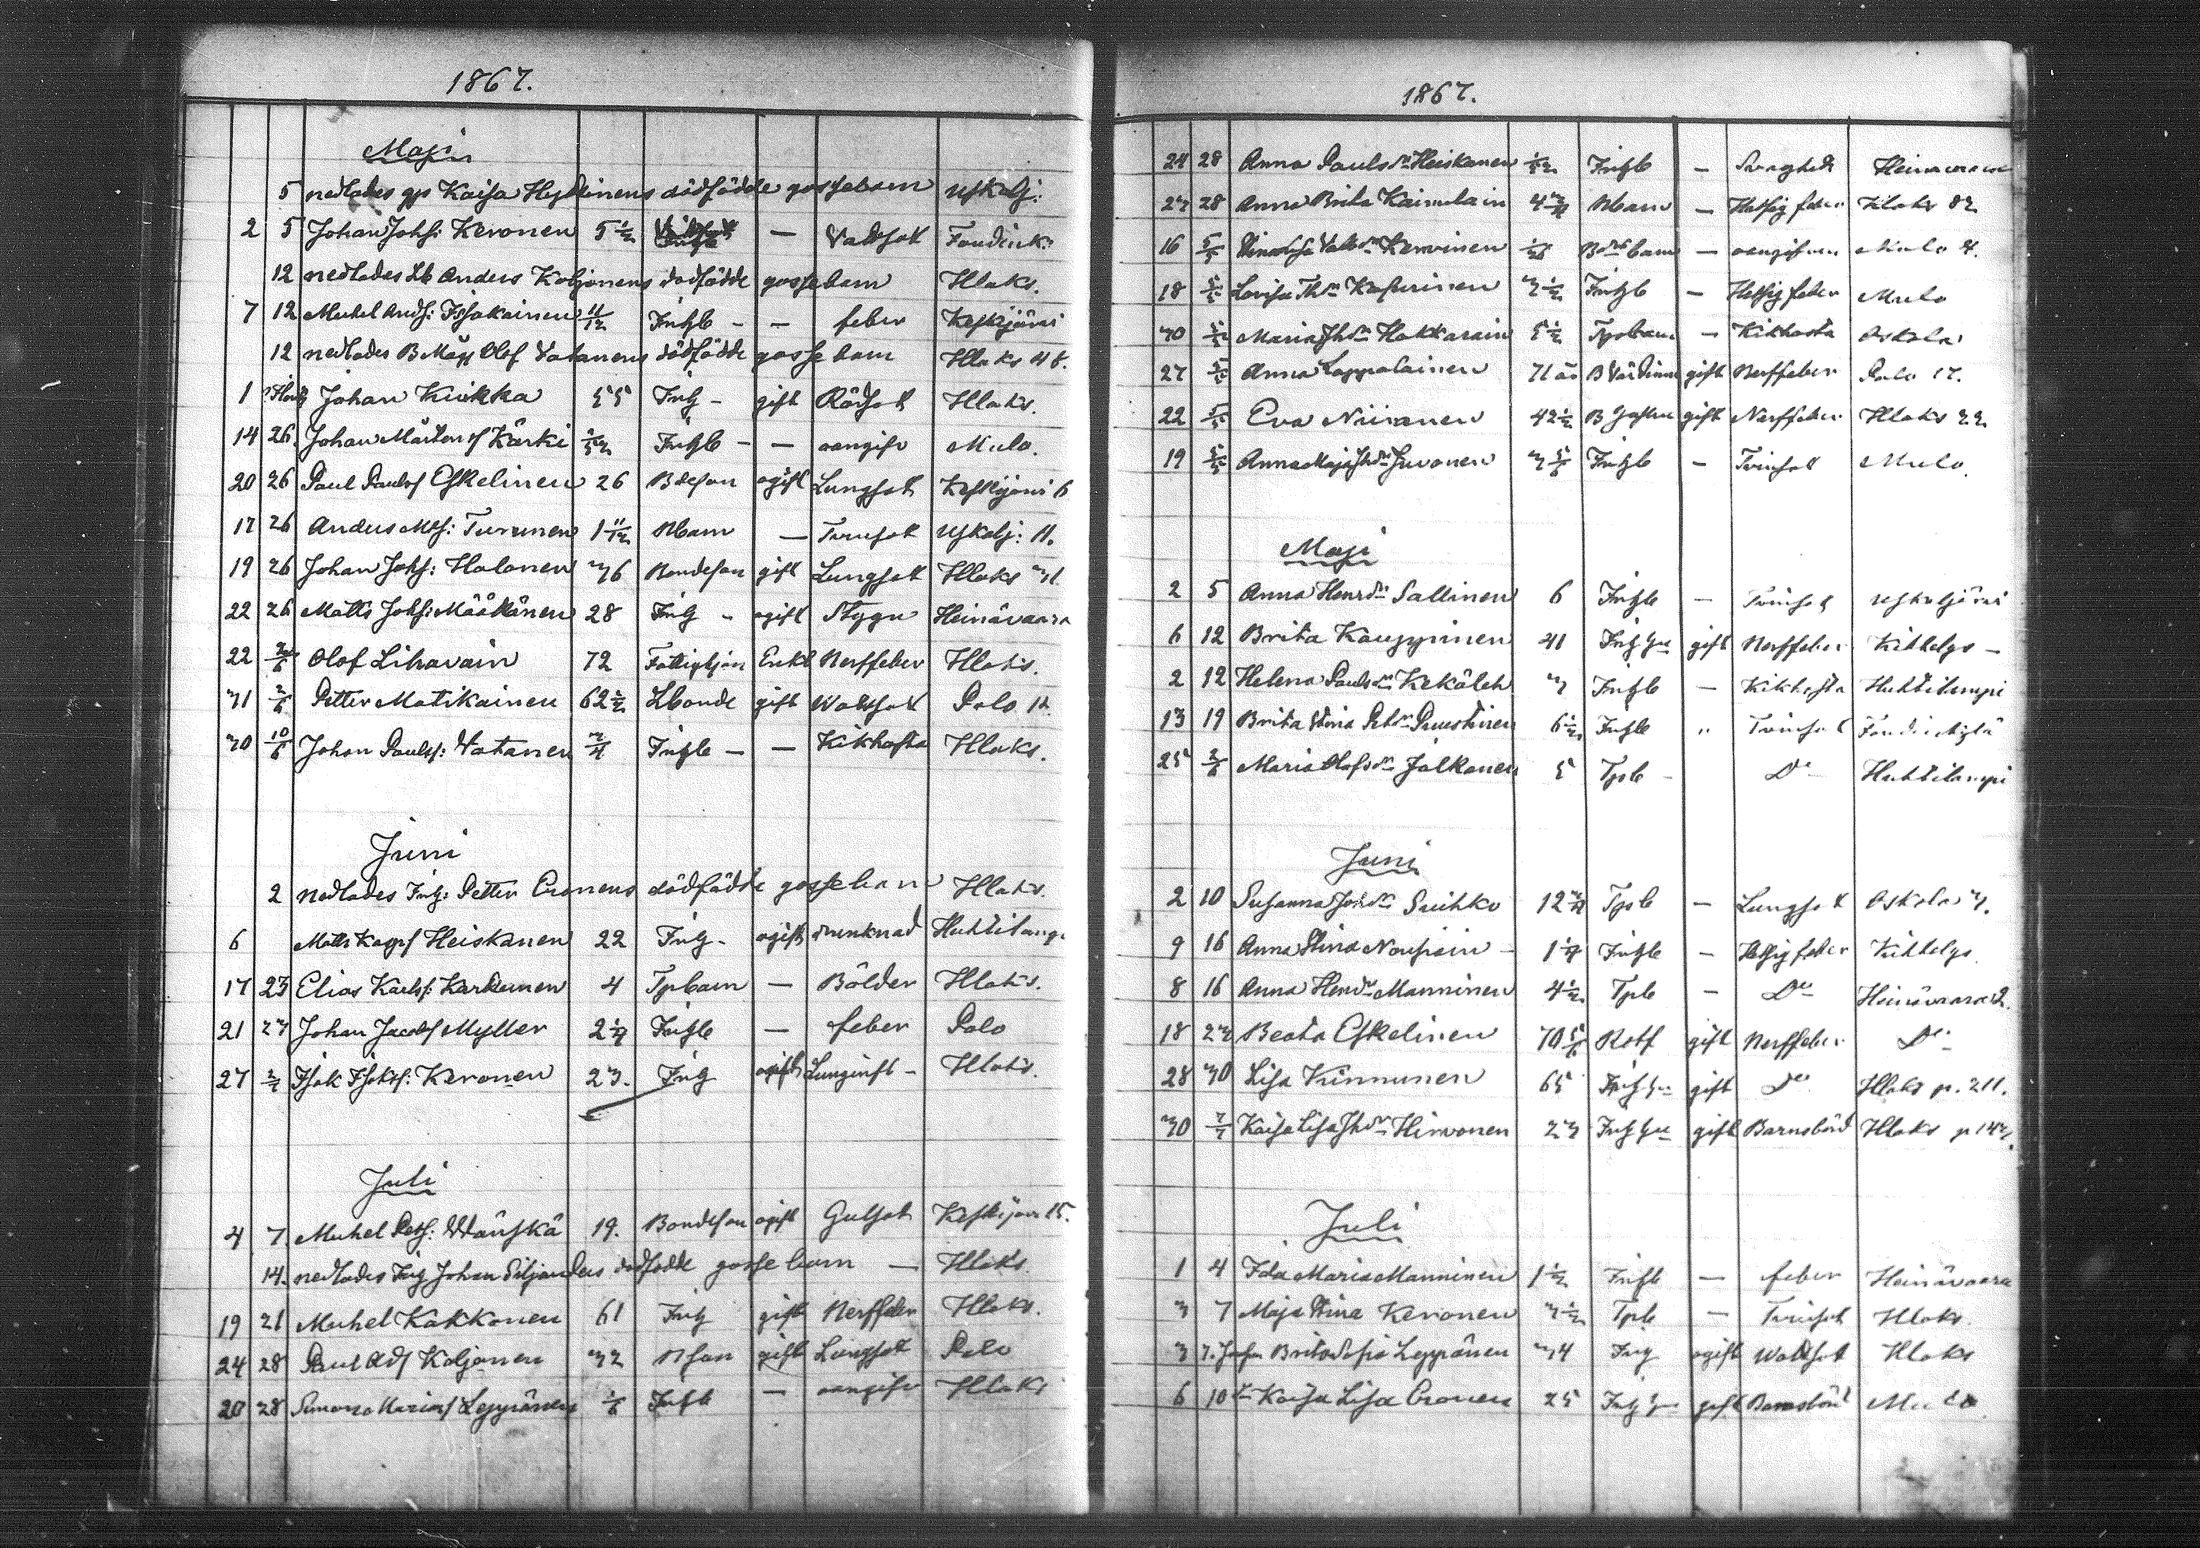 1867.
Maji
5 nedlades gps Kaisa Hyttinens dödfödde gossebarn Uskalj:
2 5 Johan Johs: Keronen 5 1/2 Inhsb — Vattsot
12 nedlades Lb Anders Koljonens dödfödde gossebarn Illaks.
7 12 Mickel Ands: Issakainen 11/12 Inhsb — — feber Keskijärvi
12 nedlades B Måg Olof Vatanens dödfödde gossebarn Illaks 48.
1 Johan Kiukka 55 Inh — gift Rödsot Illaks.
14 26. Johan Mårtens Kärki Inhsb — — oangifv Mulo.
20 26 Paul Paulss Eskelinen 26 Bdeson ogift Lungsot Keskijärvi 6
17 26 Anders Mts: Turunen 1 11/12 Nbarn — Trinsot Uskalj: 11.
19 26 Johan Johs: Halonen 36 Bondeson gift Lungsot Illaks 31
22 26 Matts Johs: Määttänen 28 Inh — ogift Stygn Heinävaara
22 2/6 Olof Lihavain 72 Fattighjon Enkl Nerffeber Illaks.
31 2/6 Petter Matikainen 62 1/2 Lbonde gift Wattsot Polo 12.
30 10/6 Johan Paulss: Vatanen 3/4 Inhsb — — Kikhosta Illaks.
Juni
2 nedlades Inh: Petter Eronens dödfödde gossebarn Illaks.
6 Matts Kasps Heiskanen 22 Inh — ogift drunknad Huhtilampi
17 23 Elias Karls: Karkunen 4 Tpbarn — Bölder Illaks.
21 23 Johan Jacobs Myller 2 1/4 Inhsb — feber Polo
27 2/7 Isak Isaks: Keronen 23. Inh ogift — Illaks.
Juli
4 7. Mickel Pets: Wänskä 19. Bondeson ogift Gulsot Keskijärvi 15.
14. nedlades Inh Johan Siljanders dödfödde gossebarn — Illaks
19 21 Mickel Kakkonen 61 Inh gift Nerffeber Illaks.
24 28 Paul Ads Koljonen 32 Nson gift Lungsot Polo
20 28 Simon Marias Leppänen 1/6 Inhsb — oangifv Illaks
1867.
24 28 Anna Paulsdr Heiskanen 1/52 Inhsb — Svaghet Heinävaara
23 28 Anna Brita Kaimulain 4 3/4 Nbarn — Hetsig feber Illaks 82
16 5/5 Stina Lisa Kervinen Bdebarn — oangifven Mulo 4.
18 5/5 Lovisa Thdr Kasurinen 3 1/2 Inhsb — Hetsig feber Mulo
30 5/5 Maria Jhdr Hakkarain 5 1/2 Tpbarn — Kikhosta Oskola
27 5/5 Anna Lappalainen 71 år B Värdinna gift Nerffeber Polo 17.
22 5/5 Eva Niiranen 42 1/2 B gift Nerffeber Illaks 22
19 5/5 Anna Maja Jhdr Juvonen 3 5/6 Inhsb — Trinsot Mulo.
Maji
2 5 Anna Henrdr Sallinen 6 Inhsb — Trinsot Uskaljärvi
6 12 Brita Kauppinen 41 Inh hu gift Nerffeber Kihtelys —
2 12 Helena Paulsdr Kekäleh 3 Inhsb — Kikhosta Huhtilampi
13 19 Brita Stina Petdr Puustinen 6 1/2 Inhsb " Trinsot
25 2/6 Maria Olofsdr Jalkanen 5 Tpb — Do Huhtilampi
Juni
2 10 Susanna Johdr Suihko 12 3/4 Tpb — Lungsot Oskola 3.
9 16 Anna Stina Nousiain — 1 1/4 Inhsb — Hetsig feber Kihtelys
8 16 Anna Hendr Manninen 4 1/2 Tpb — Do Heinävaara 2
18 23 Beata Eskelinen 70 5/6 Rotf gift Nerffeber Do
28 30 Lisa Kinnunen 65 Inh hu gift Do Illaks p. 211.
30 7/7 Kaisa Lisa Jhdr Hirvonen 23 Inh hu gift Barnsbörd Illaks p 143.
Juli
1 4 Ida Maria Manninen 1 1/2 Inhsb — feber Heinävaara
3 7 Maja Stina Keronen 3 1/2 Tpb — Trinsot Illaks.
3 7. Brita Sofia Leppänen 34 Inh ogift Wattsot Illaks
6 10 Kaisa Lisa Eronen 25 Inh hu gift Barnsbörd Mulo